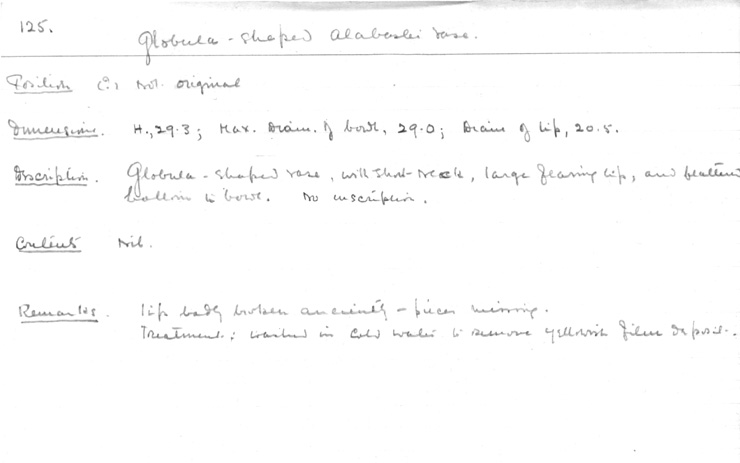 125.
Globular-shaped Alabaster vase.
Position C:, Not original
Dimensions. H., 29.3; Max. Diam. of bowl, 29.0; Diam of lip, 20.5.
Description. Globular-shaped vase, with short-neck, large flaring lip, and flattened
bottom to bowl. No inscription.
Contents Nil.
Remarks. lip badly broken anciently – pieces missing.
Treatment: washed in cold water to remove yellowish film deposit.